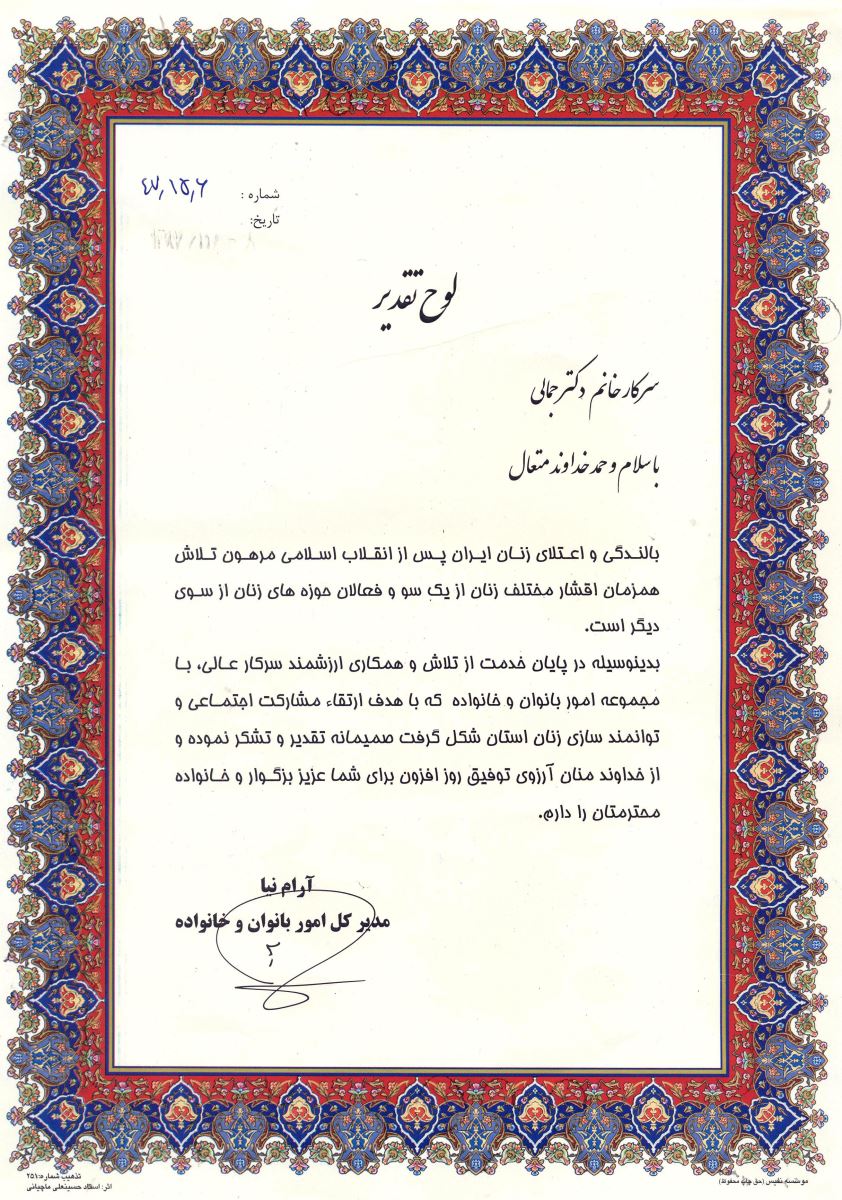 شماره :
تاریخ:
لوح تقدیر
سرکار خانم دکتر جمالی
با سلام و حمد خداوند متعال
بالندگی و اعتلای زنان ایران پس از انقلاب اسلامی مرهون تلاش
همزمان اقشار مختلف زنان از یک سو و فعالان حوزه های زنان از سوی
دیگر است.
بدینوسیله در پایان خدمت از تلاش و همکاری ارزشمند سرکار عالی، با
مجموعه امور بانوان و خانواده که با هدف ارتقاء مشارکت اجتماعی و
توانمند سازی زنان استان شکل گرفت صمیمانه تقدیر و تشکر نموده و
از خداوند منان آرزوی توفیق روز افزون برای شما عزیز بزگوار و خانواده
محترمتان را دارم.
آرام نیا
مدیر کل امور بانوان و خانواده
موسسه نفیس (حق چاپ محفوظ)
تذهیب شماره:۲۵۱
اثر: استاد حسینعلی ماچیانی